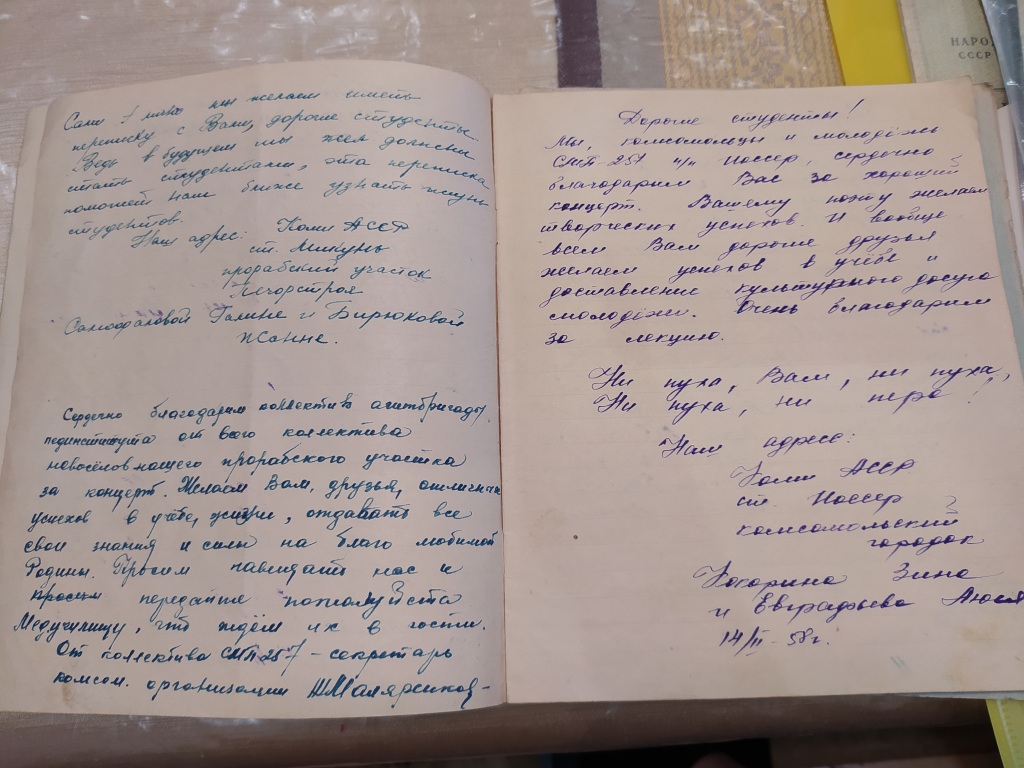 Сами лично мы желаем иметь
переписку с Вами, дорогие студенты.
Ведь в будущем мы тоже должны
стать студентами, эта переписка
поможет нам ближе узнать жизнь
студентов.
Наш адрес: Коми АССР
ст. Микунь
прорабский участок
Печорстроя
Самофаловой Галине и Бирюковой
Жанне.
Сердечно благодарим коллектив агитбригады
пединститута от всего коллектива
новосёлов нашего прорабского участка
за концерт. Желаем Вам, друзья, отличных
успехов в учёбе, жизни, отдавать все
свои знания и силы на благо любимой
Родины. Просим навещать нас и
просим передайте пожалуйста
Медучилищу, что ждём их в гости.
От коллектива СМП 257 – секретарь
комсом. организации
Дорогие студенты!
Мы, комсомольцы и молодёжь
СМП 251 Иоссер, сердечно
благодарим Вас за хороший
концерт. Вашему поэту желаем
творческих успехов. И вообще
всем Вам дорогие друзья
желаем успехов в учёбе и
доставление культурного досуга
молодёжи. Очень благодарим
за лекцию.
Ни пуха, Вам, ни пуха,
Ни пуха, ни пера!
Наш адрес:
Коми АССР
ст. Иоссер
комсомольский
городок
Кокорина Зина
и Евграфьева Люся
14/II - 58 г.
НАРОД
СССР